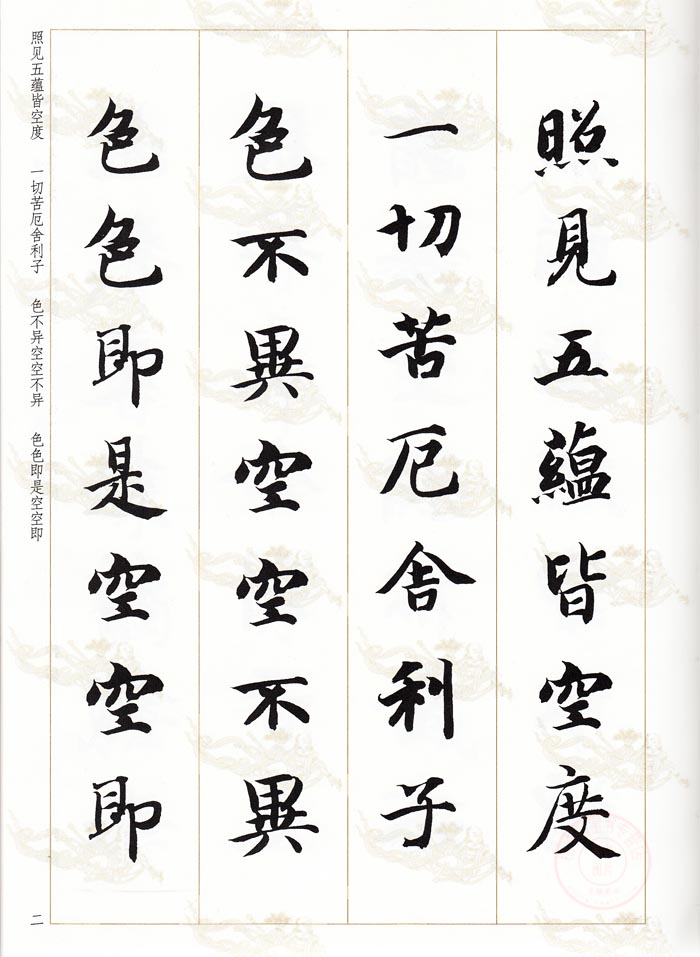 照見五蘊皆空度
一切苦厄舍利子
色不異空空不異
色色即是空空即
照见五蕴皆空度 一切苦厄舍利子 色不异空空不异 色色即是空空即
二